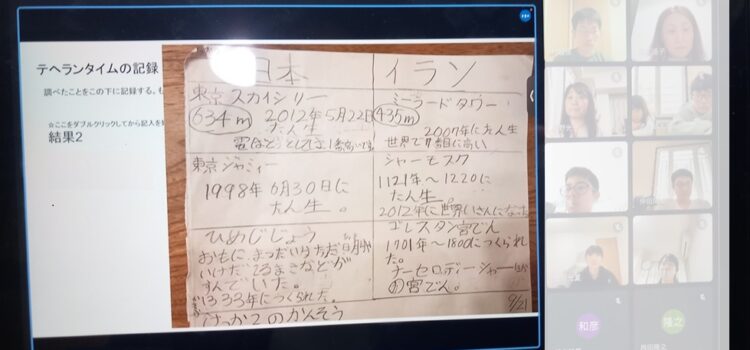 テヘランタイムの記録
調べたことをこの下に記録する。も
☆ここをダブルクリックしてから記入を
結果2
日本
東京スカイツリー
634m
2012年5月22日
たん生
東京ジャーミィー
1998年6月30日に
たん生。
ひめじじょう
おもに、
すんでいた。
1333年につくられた。
けっか2のかんそう
イラン
ミラードタワー
435m
2007年にたん生
世界で7番目に高い
シャーモスク
1121年〜1220に
たん生。
2012年に世界いさんになった
ゴレスタン宮でん
1701年〜1800につくられ
た。
ナーセロッディーシャー
の宮でん。
9/21
和彦
隆之